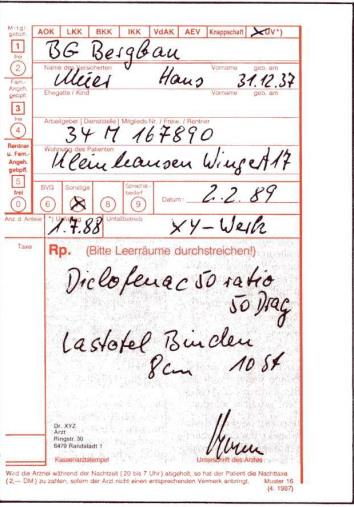 Mitgl. gebpfl. AOK LKK BKK IKK VdAK AEV Knappschaft UV*)
1
BG Bergbau
frei
2
Name des Versicherten Vorname geb. am
Meier Hans 31.12.37
Fam.-Angeh. gebpfl.
Ehegatte / Kind Vorname geb. am
3
frei
4
Arbeitgeber (Dienststelle) Mitglieds-Nr. / Freiw. / Rentner
34 M 167890
Rentner u. Fam.-Angeh. gebpfl.
Wohnung des Patienten
Kleinhausen Wingert 17
5
frei
0
BVG Sonstige Sprechst.-bedarf
6 8 9 Datum: 2.2.89
Anz. d. Anteile *) Unfalltag Unfallbetrieb
1.7.88 XY-Werk
Taxe
Rp. (Bitte Leerräume durchstreichen!)
Diclofenac 50 ratio
50 Drag
Lastotel Binden
8cm 10 St
Dr. XYZ
Arzt
Ringstr. 30
6479 Randstadt 1
Kassenarztstempel Unterschrift des Arztes
Wird die Arznei während der Nachtzeit (20 bis 7 Uhr) abgeholt, so hat der Patient die Nachttaxe
(2,— DM) zu zahlen, sofern der Arzt nicht einen entsprechenden Vermerk anbringt. Muster 16
(4. 1987)